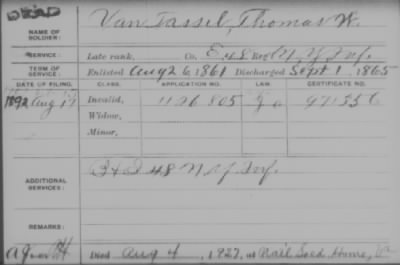 DEAD
NAME OF SOLDIER: Van Tassel, Thomas W.
SERVICE: Late rank, Co. E, 48 Reg't N.Y. Inf.
TERM OF SERVICE: Enlisted Aug 26, 1861 Discharged Sept 1, 1865
DATE OF FILING. CLASS. APPLICATION NO. LAW. CERTIFICATE NO.
1892 Aug 17 Invalid, 1126805 971556
Widow,
Minor,
ADDITIONAL SERVICES: 48 N Y Inf.
REMARKS:
Died Aug 4, 1927, at Nat'l Sold. Home, Va